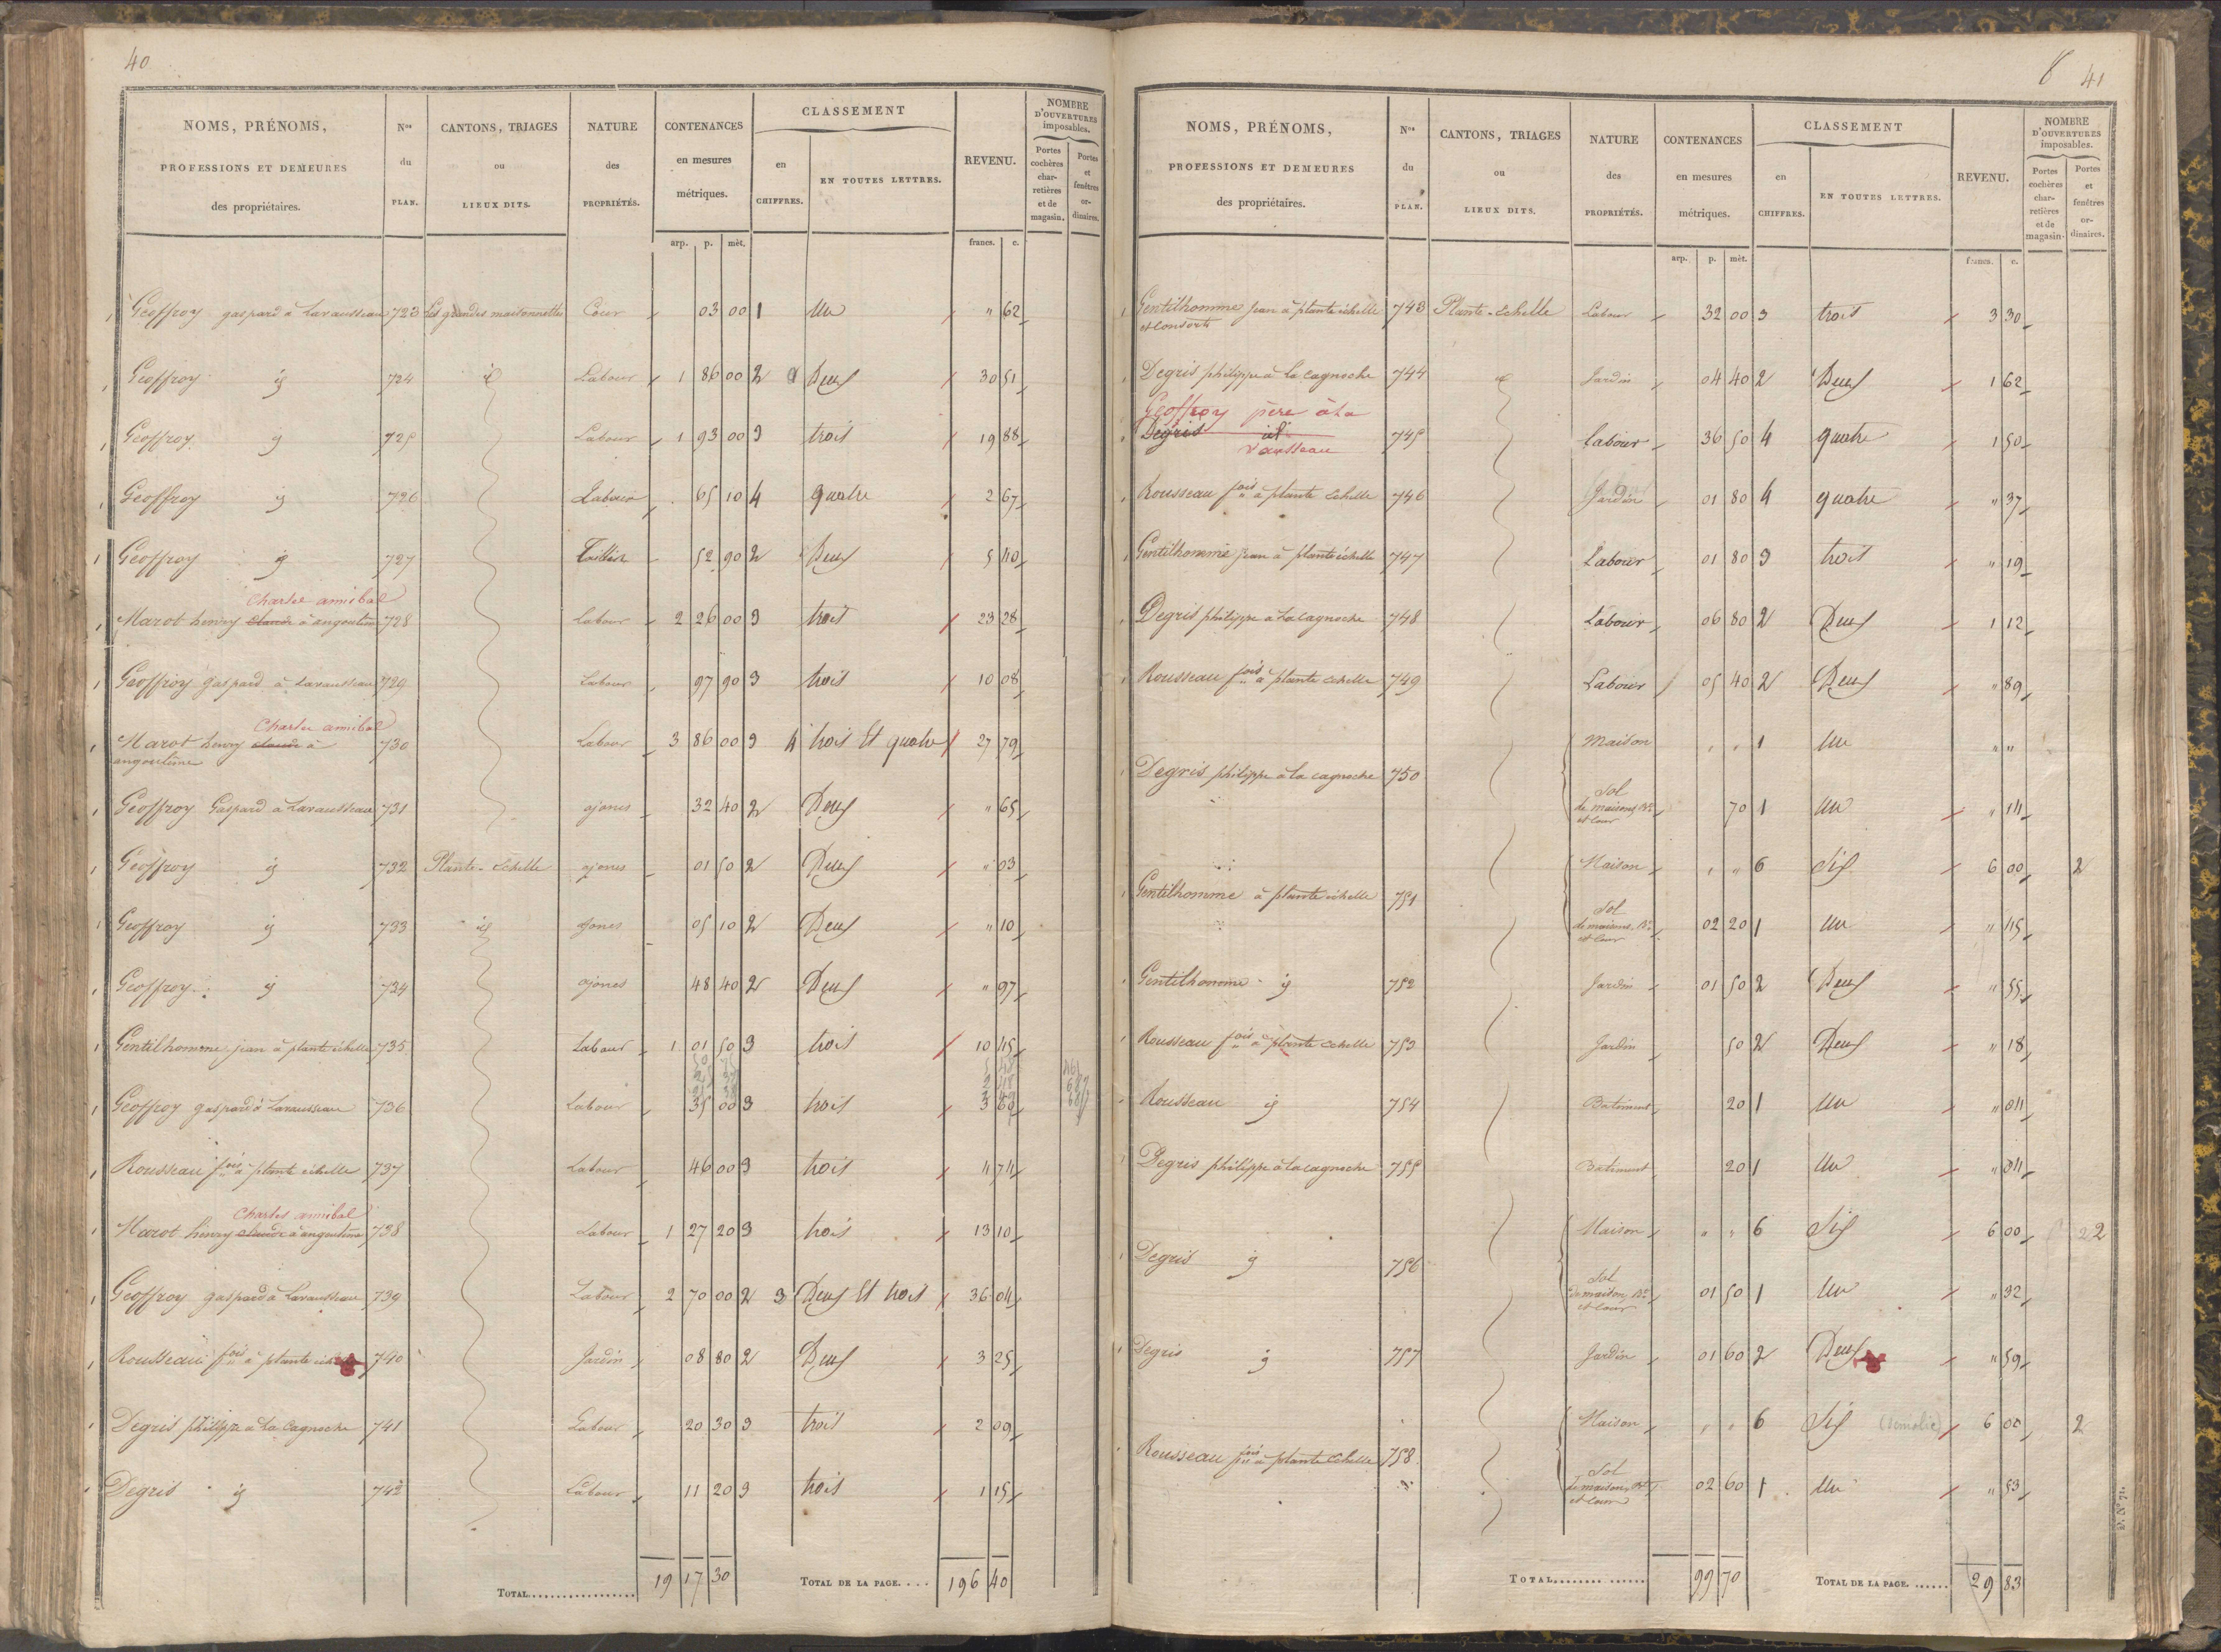 40
NOMS, PRÉNOMS, PROFESSIONS ET DEMEURES des propriétaires. | Nos du PLAN. | CANTONS, TRIAGES ou LIEUX DITS. | NATURE des PROPRIÉTÉS. | CONTENANCES en mesures métriques. | CLASSEMENT en CHIFFRES. | EN TOUTES LETTRES. | REVENU. | NOMBRE D'OUVERTURES imposables. Portes cochères charretières et de magasin. | Portes et fenêtres ordinaires.
arp. p. mèt. francs. c.
Geoffroy gaspard à Lavausseau 723 Les grandes maisonnettes Cour 03 00 1 Un " 62
Geoffroy id 724 id Labour 1 86 00 2 Deux 30 51
Geoffroy id 725 Labour 1 93 00 3 trois 19 88
Geoffroy id 726 Labour 65 10 4 quatre 2 67
Geoffroy id 727 Taillis 52 90 2 Deux 5 40
Charles annibal
Marot henry claude à angoulême 728 Labour 2 26 00 3 trois 23 28
Geoffroy gaspard à Lavausseau 729 Labour 97 90 3 trois 10 08
Charles annibal
Marot henry claude à angoulême 730 Labour 3 86 00 3 4 trois Et quatre 27 79
Geoffroy Gaspard à Lavausseau 731 ajoncs 32 40 2 Deux " 65
Geoffroy id 732 Plante-Echelle ajoncs 01 50 2 Deux " 03
Geoffroy id 733 id ajoncs 05 10 2 Deux " 10
Geoffroy id 734 ajoncs 48 40 2 Deux " 97
Gentilhomme jean à plante échelle 735 Labour 1 01 50 3 trois 10 45
Geoffroy gaspard à Lavausseau 736 Labour 35 00 3 trois 3 60
Rousseau fois à plante échelle 737 Labour 46 00 3 trois 4 74
Charles annibal
Marot henry claude à angoulême 738 Labour 1 27 20 3 trois 13 10
Geoffroy gaspard à Lavausseau 739 Labour 2 70 00 2 3 Deux Et trois 36 04
Rousseau fois à plante 740 Jardin 08 80 2 Deux 3 25
Degris philippe à la Cagnoche 741 Labour 20 30 3 trois 2 09
Degris id 742 Labour 11 20 3 trois 1 15
TOTAL 19 17 30 TOTAL DE LA PAGE.... 196 40
8 41
NOMS, PRÉNOMS, PROFESSIONS ET DEMEURES des propriétaires. | Nos du PLAN. | CANTONS, TRIAGES ou LIEUX DITS. | NATURE des PROPRIÉTÉS. | CONTENANCES en mesures métriques. | CLASSEMENT en CHIFFRES. | EN TOUTES LETTRES. | REVENU. | NOMBRE D'OUVERTURES imposables. Portes cochères charretières et de magasin. | Portes et fenêtres ordinaires.
arp. p. mèt. francs. c.
Gentilhomme jean à plante échelle et consorts 743 Plante-Echelle Labour 32 00 3 trois 3 30
Degris philippe à la cagnoche 744 id Jardin 04 40 2 Deux 1 62
Geoffroy père à la
Degris id 745 Labour 36 50 4 quatre 1 50
Vausseau
Rousseau fois à plante Echelle 746 Jardin 01 80 4 quatre " 37
Gentilhomme jean à plante échelle 747 Labour 01 80 3 trois " 19
Degris philippe à la cagnoche 748 Labour 06 80 2 Deux 1 12
Rousseau fois à plante echelle 749 Labour 05 40 2 Deux " 89
Degris philippe à la cagnoche 750 Maison " " 1 Un " "
Sol de maison, Bt et cour 70 1 Un " 14
Gentilhomme à plante échelle 751 Maison " " 6 Six 6 00 2
Sol de maison, Bt et cour 02 20 1 Un " 45
Gentilhomme id 752 Jardin 01 50 2 Deux " 55
Rousseau fois à plante echelle 753 Jardin 50 2 Deux " 18
Rousseau id 754 Batiment 20 1 Un " 04
Degris philippe à la cagnoche 755 Batiment 20 1 Un " 04
Degris id 756 Maison " " 6 Six 6 00 2 2
Sol de maison, Bt et cour 01 50 1 Un " 32
Degris id 757 Jardin 01 60 2 Deux " 59
Rousseau fois à plante Echelle 758 Maison " " 6 Six (démolie) 6 00 2
Sol de maison, Bt et cour 02 60 1 Un " 53
TOTAL 99 70 TOTAL DE LA PAGE. 29 83
D. N° 71.